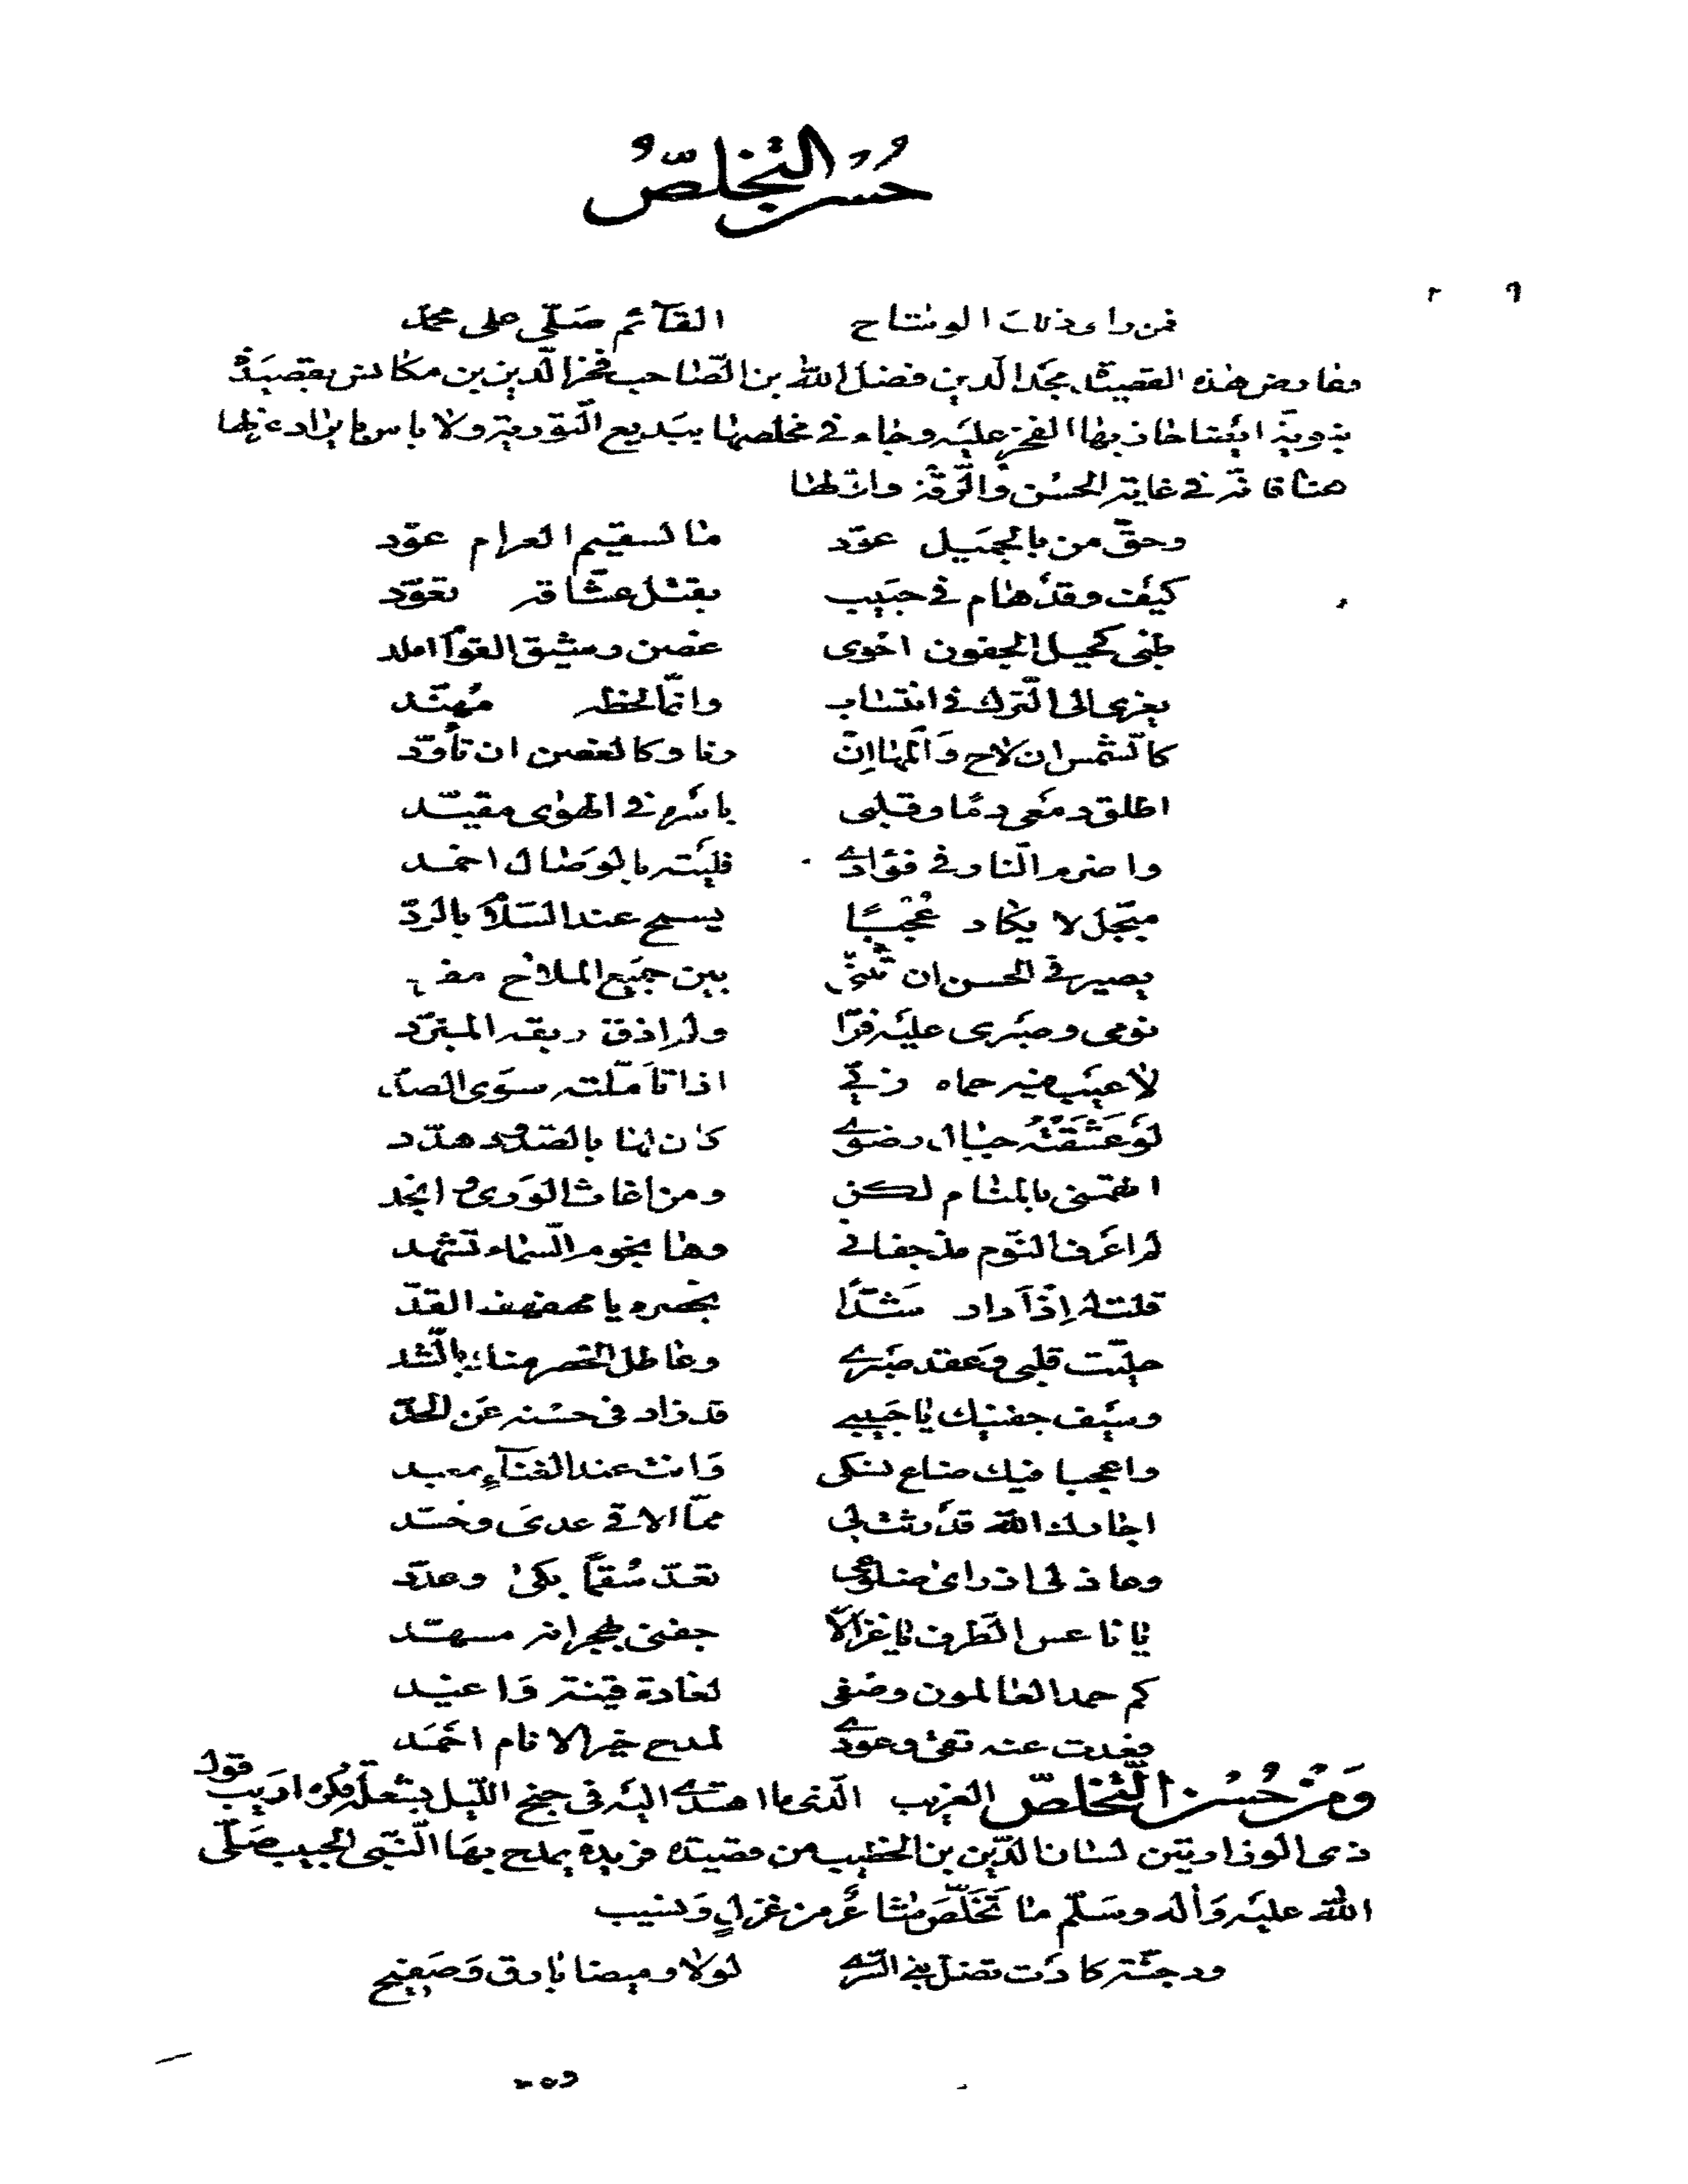 حُسْنُ التَّخَلُّصِ
٢ ٩
فمن راى ذلك الوشاح القآئم صَلّى على محمّد
وعارض هذه القصيدة مجد الّدين فضل الله بن الصّاحب فخر الّدين بن مكانس بقصيَدة
نبويّة ايضًا حاز بها الفخر عليَه وجاء فى مخلصها ببَديع التّورية ولا باس بايرادغزلها
هنا فانه فى غاية الحسُن والرّقة واوّلها
وحقّ من بالجميَل عوّد ما لسقيم الغرام عوّد
كيَف وقد هام فى حبَيب بقتل عشّاقه تعوّد
ظبى كحيل الجفون احوى غصن رشيق القوآم املد
يعزى الى التّرك فى انتساب وانّما لحظه مُهنّد
كالشّمس ان لاح وَالمها اِن رنا وكالغصن ان تأوّد
اطلق دمَعى دمًا وقلبى باسَره فى الهوى مقيّد
واضرم النّار فى فؤادى فليَته بالوَصال اخمد
مبّجل لا يكاد عُجْبًا يسمح عند السّلآم بالردّ
يصير فى الحسن ان تثنّى بين جميَع الملاح مفرد
نومى وصبَرى عليَه فرّا ولم اذق ريقه المبرّد
لا عيَب فيه حماه ربّى اذا تأمّلته سوَى الصدّ
لوَ عَشَقَتْهُ جبال رضوى كان لها بالصّدود هدّد
اتهمّنى بالمنام لكن ومن اغاث الوَرى وانجد
لم اعَرف النّوم مذ جفانى وها نجوم السّماء تشهد
قلت له اِذْ اَدار شَدًّا بخصره يا مهفهف القدّ
حلّيت قلبى وَعقد صبَرى وعاطل الخصر منك بالشّد
وسيَف جفنيك يا حبَيبى قد زاد فى حسْنه عَن الحدّ
واعجبا فيك ضاع نسكى وَانت عند الغنآءِ معبد
اجارك الله قد رثت لى ممّا الاقى عدىَ وحسّد
وعاذلى اذ راى ضلوعى تعدّ سُقمًا بكى وعدّد
يا ناعس الطّرف يا غزالًا جفنى بهجرانه مسهّد
كم حمد العالمون وصَفى لغادة قينة وَاغيَد
فعدت عنه تقى وعودى لمدح خيَر الانام احَمَد
وَمِنْ حُسْنِ التَّخَلُّصِ الغريب الّذى ما اهتدى اليَه فى جنح اللّيل بشعلة فكره اديَب قول
ذى الوزارتين لسان الدّين بن الخطيب من قصيَدة فريدة يمدح بهَا النّبّى الحبيب صَلّى
الله عليَه وَآله وسَلّم ما تَخَلّصَ شاعر من غزلٍ وَنسيب
ودجنّة كادَت تضل بنى السّرى لولا وميضا بارق وَصَفيح